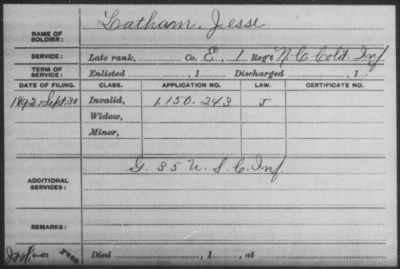 NAME OF SOLDIER: Latham, Jesse
SERVICE: Late rank, Co. E, 1 Reg't N.C. Cold Inf
TERM OF SERVICE: Enlisted , 1 Discharged , 1
DATE OF FILING. CLASS. APPLICATION NO. LAW. CERTIFICATE NO.
1892 Sept. 30 Invalid, 1.150.243 J
Widow,
Minor,
ADDITIONAL SERVICES: G. 35 U.S.C. Inf.
REMARKS:
Died , 1 , at